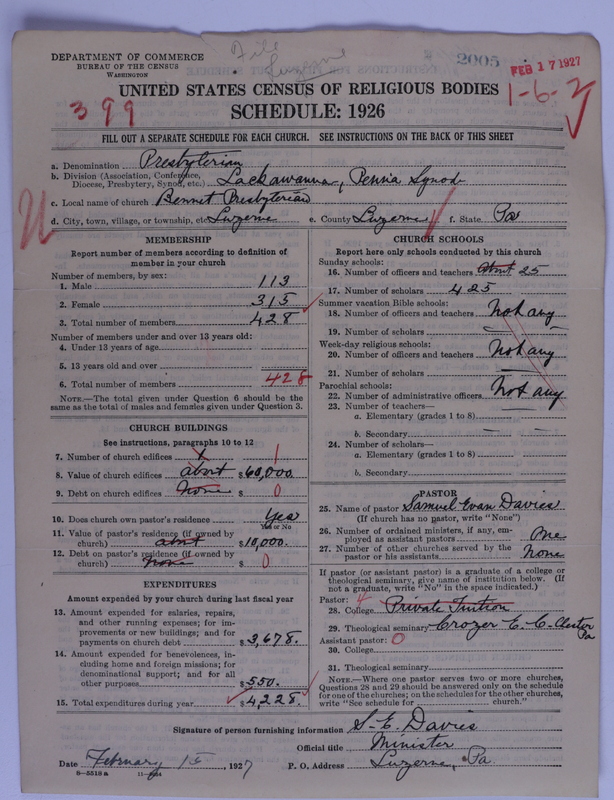 DEPARTMENT OF COMMERCE
BUREAU OF THE CENSUS
WASHINGTON
2005
FEB 17 1927
1-6-2
399
UNITED STATES CENSUS OF RELIGIOUS BODIES
SCHEDULE: 1926
FILL OUT A SEPARATE SCHEDULE FOR EACH CHURCH. SEE INSTRUCTIONS ON THE BACK OF THIS SHEET
a. Denomination Presbyterian
b. Division (Association, Conference, Diocese, Presbytery, Synod, etc.) Lackawanna, Penna Synod
c. Local name of church Bennet Presbyterian
d. City, town, village, or township, etc. Luzerne e. County Luzerne f. State Pa
MEMBERSHIP
Report number of members according to definition of
member in your church
Number of members, by sex:
1. Male 113
2. Female 315
3. Total number of members 428
Number of members under and over 13 years old:
4. Under 13 years of age
5. 13 years old and over
6. Total number of members 428
NOTE.—The total given under Question 6 should be
same as the total of males and females given under Question 3.
CHURCH BUILDINGS
See instructions, paragraphs 10 to 12
7. Number of church edifices 1 1
8. Value of church edifices about $60,000.
9. Debt on church edifices None $0
10. Does church own pastor's residence Yes
Yes or No
11. Value of pastor's residence (if owned by
church) about $10,000.
12. Debt on pastor's residence (if owned by
church) none $0
EXPENDITURES
Amount expended by your church during last fiscal year
13. Amount expended for salaries, repairs,
and other running expenses; for im-
provements or new buildings; and for
payments on church debt $3,678.
14. Amount expended for benevolences, in-
cluding home and foreign missions; for
denominational support; and for all
other purposes $550.
15. Total expenditures during year $4,228.
CHURCH SCHOOLS
Report here only schools conducted by this church
Sunday schools:
16. Number of officers and teachers about 25
17. Number of scholars 425
Summer vacation Bible schools:
18. Number of officers and teachers Not any
19. Number of scholars
Week-day religious schools:
20. Number of officers and teachers Not any
21. Number of scholars
Parochial schools:
22. Number of administrative officers Not any
23. Number of teachers—
a. Elementary (grades 1 to 8)
b. Secondary
24. Number of scholars—
a. Elementary (grades 1 to 8)
b. Secondary
PASTOR
25. Name of pastor Samuel Evan Davies
(If church has no pastor, write "None")
26. Number of ordained ministers, if any, em-
ployed as assistant pastors One
27. Number of other churches served by the
pastor or his assistants None
If pastor (or assistant pastor) is a graduate of a college or
theological seminary, give name of institution below. (If
not a graduate, write "No" in the space indicated.)
Pastor:
28. College Private Tuition
29. Theological seminary Crozer Chester Pa
Assistant pastor: 0
30. College
31. Theological seminary
NOTE.—Where one pastor serves two or more churches,
Questions 28 and 29 should be answered only on the schedule
for one of the churches; on the schedules for the other churches
write "See schedule for church."
Signature of person furnishing information S. E. Davies
Official title Minister
Date February 15, 1927 P. O. Address Luzerne, Pa.
8—5518a